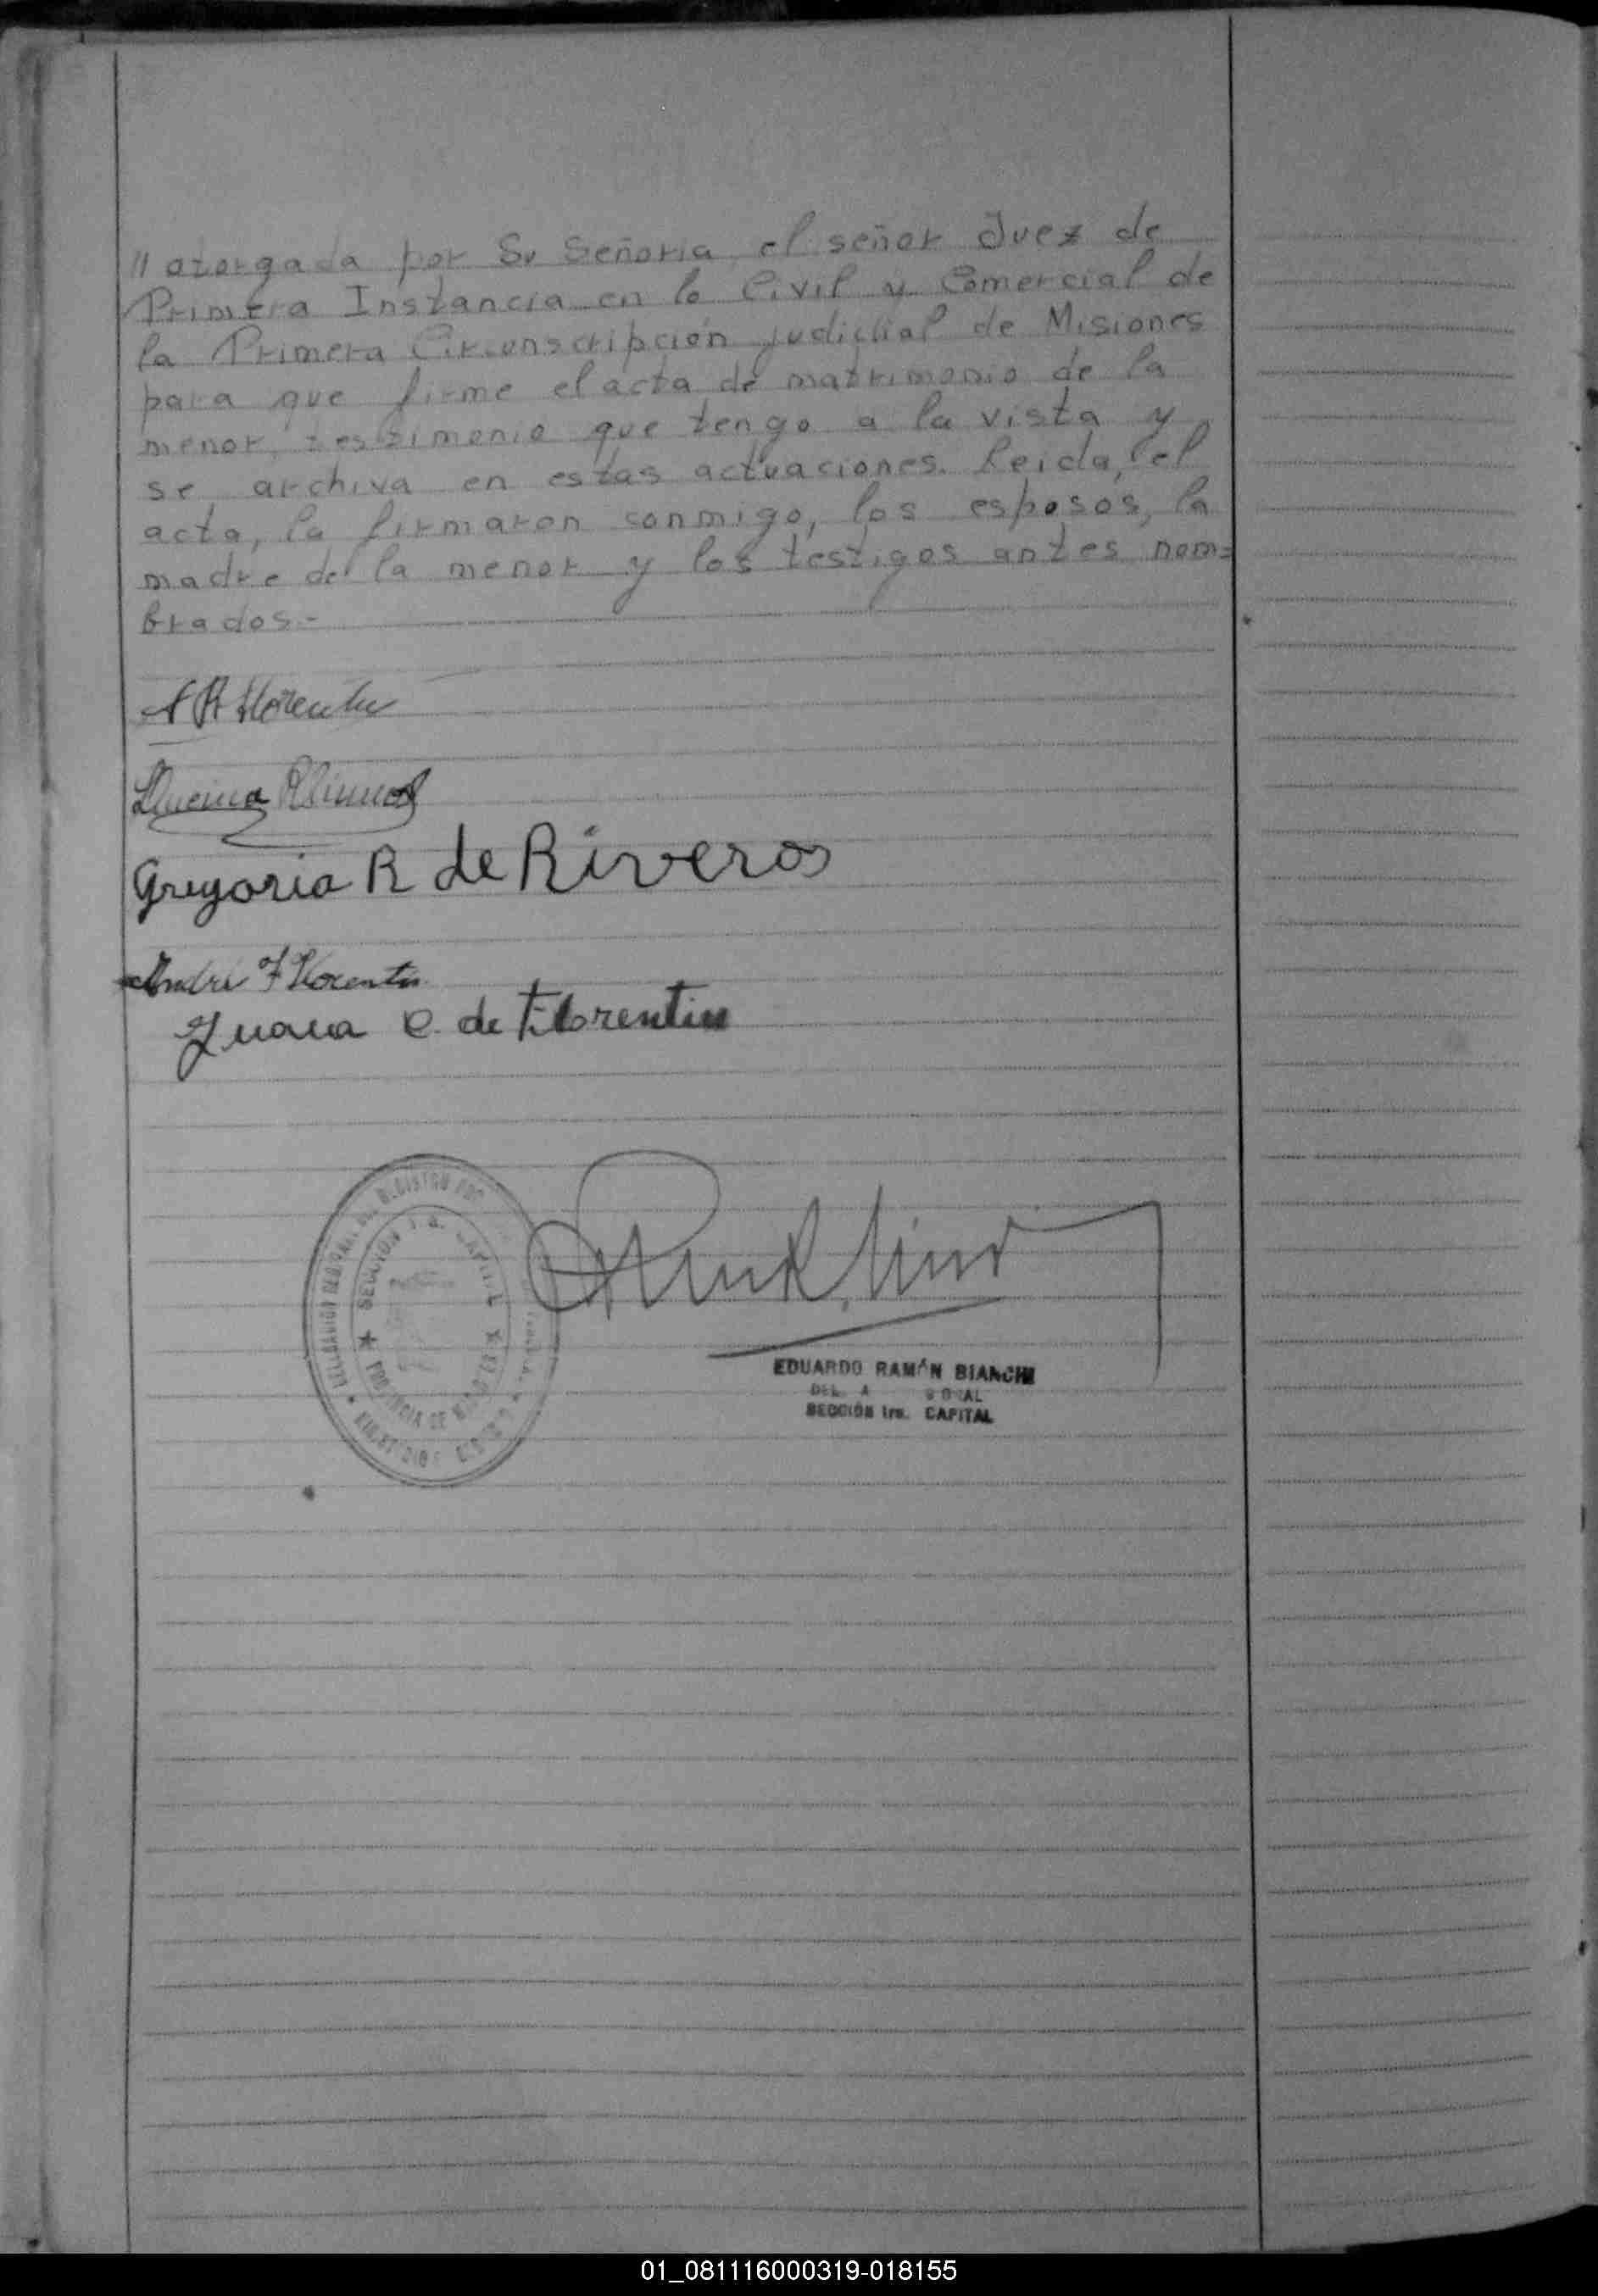 // otorgada por Su Señoria, el señor Juez de
Primera Instancia en lo Civil y Comercial de
la Primera Circunscripción judicial de Misiones
para que firme el acta de matrimonio de la
menor, testimonio que tengo a la vista y
se archiva en estas actuaciones. Leida, el
acta, la firmaron conmigo, los esposos, la
madre de la menor y los testigos antes nom=
brados.-
A R Florentin
Gregoria R de Riveros
Andrés F Florentin
Juana C. de Florentin
SECCION 1a. CAPITAL
PROVINCIA DE MISIONES
EDUARDO RAMÓN BIANCHI
SECCIÓN 1ra. CAPITAL
01_081116000319-018155